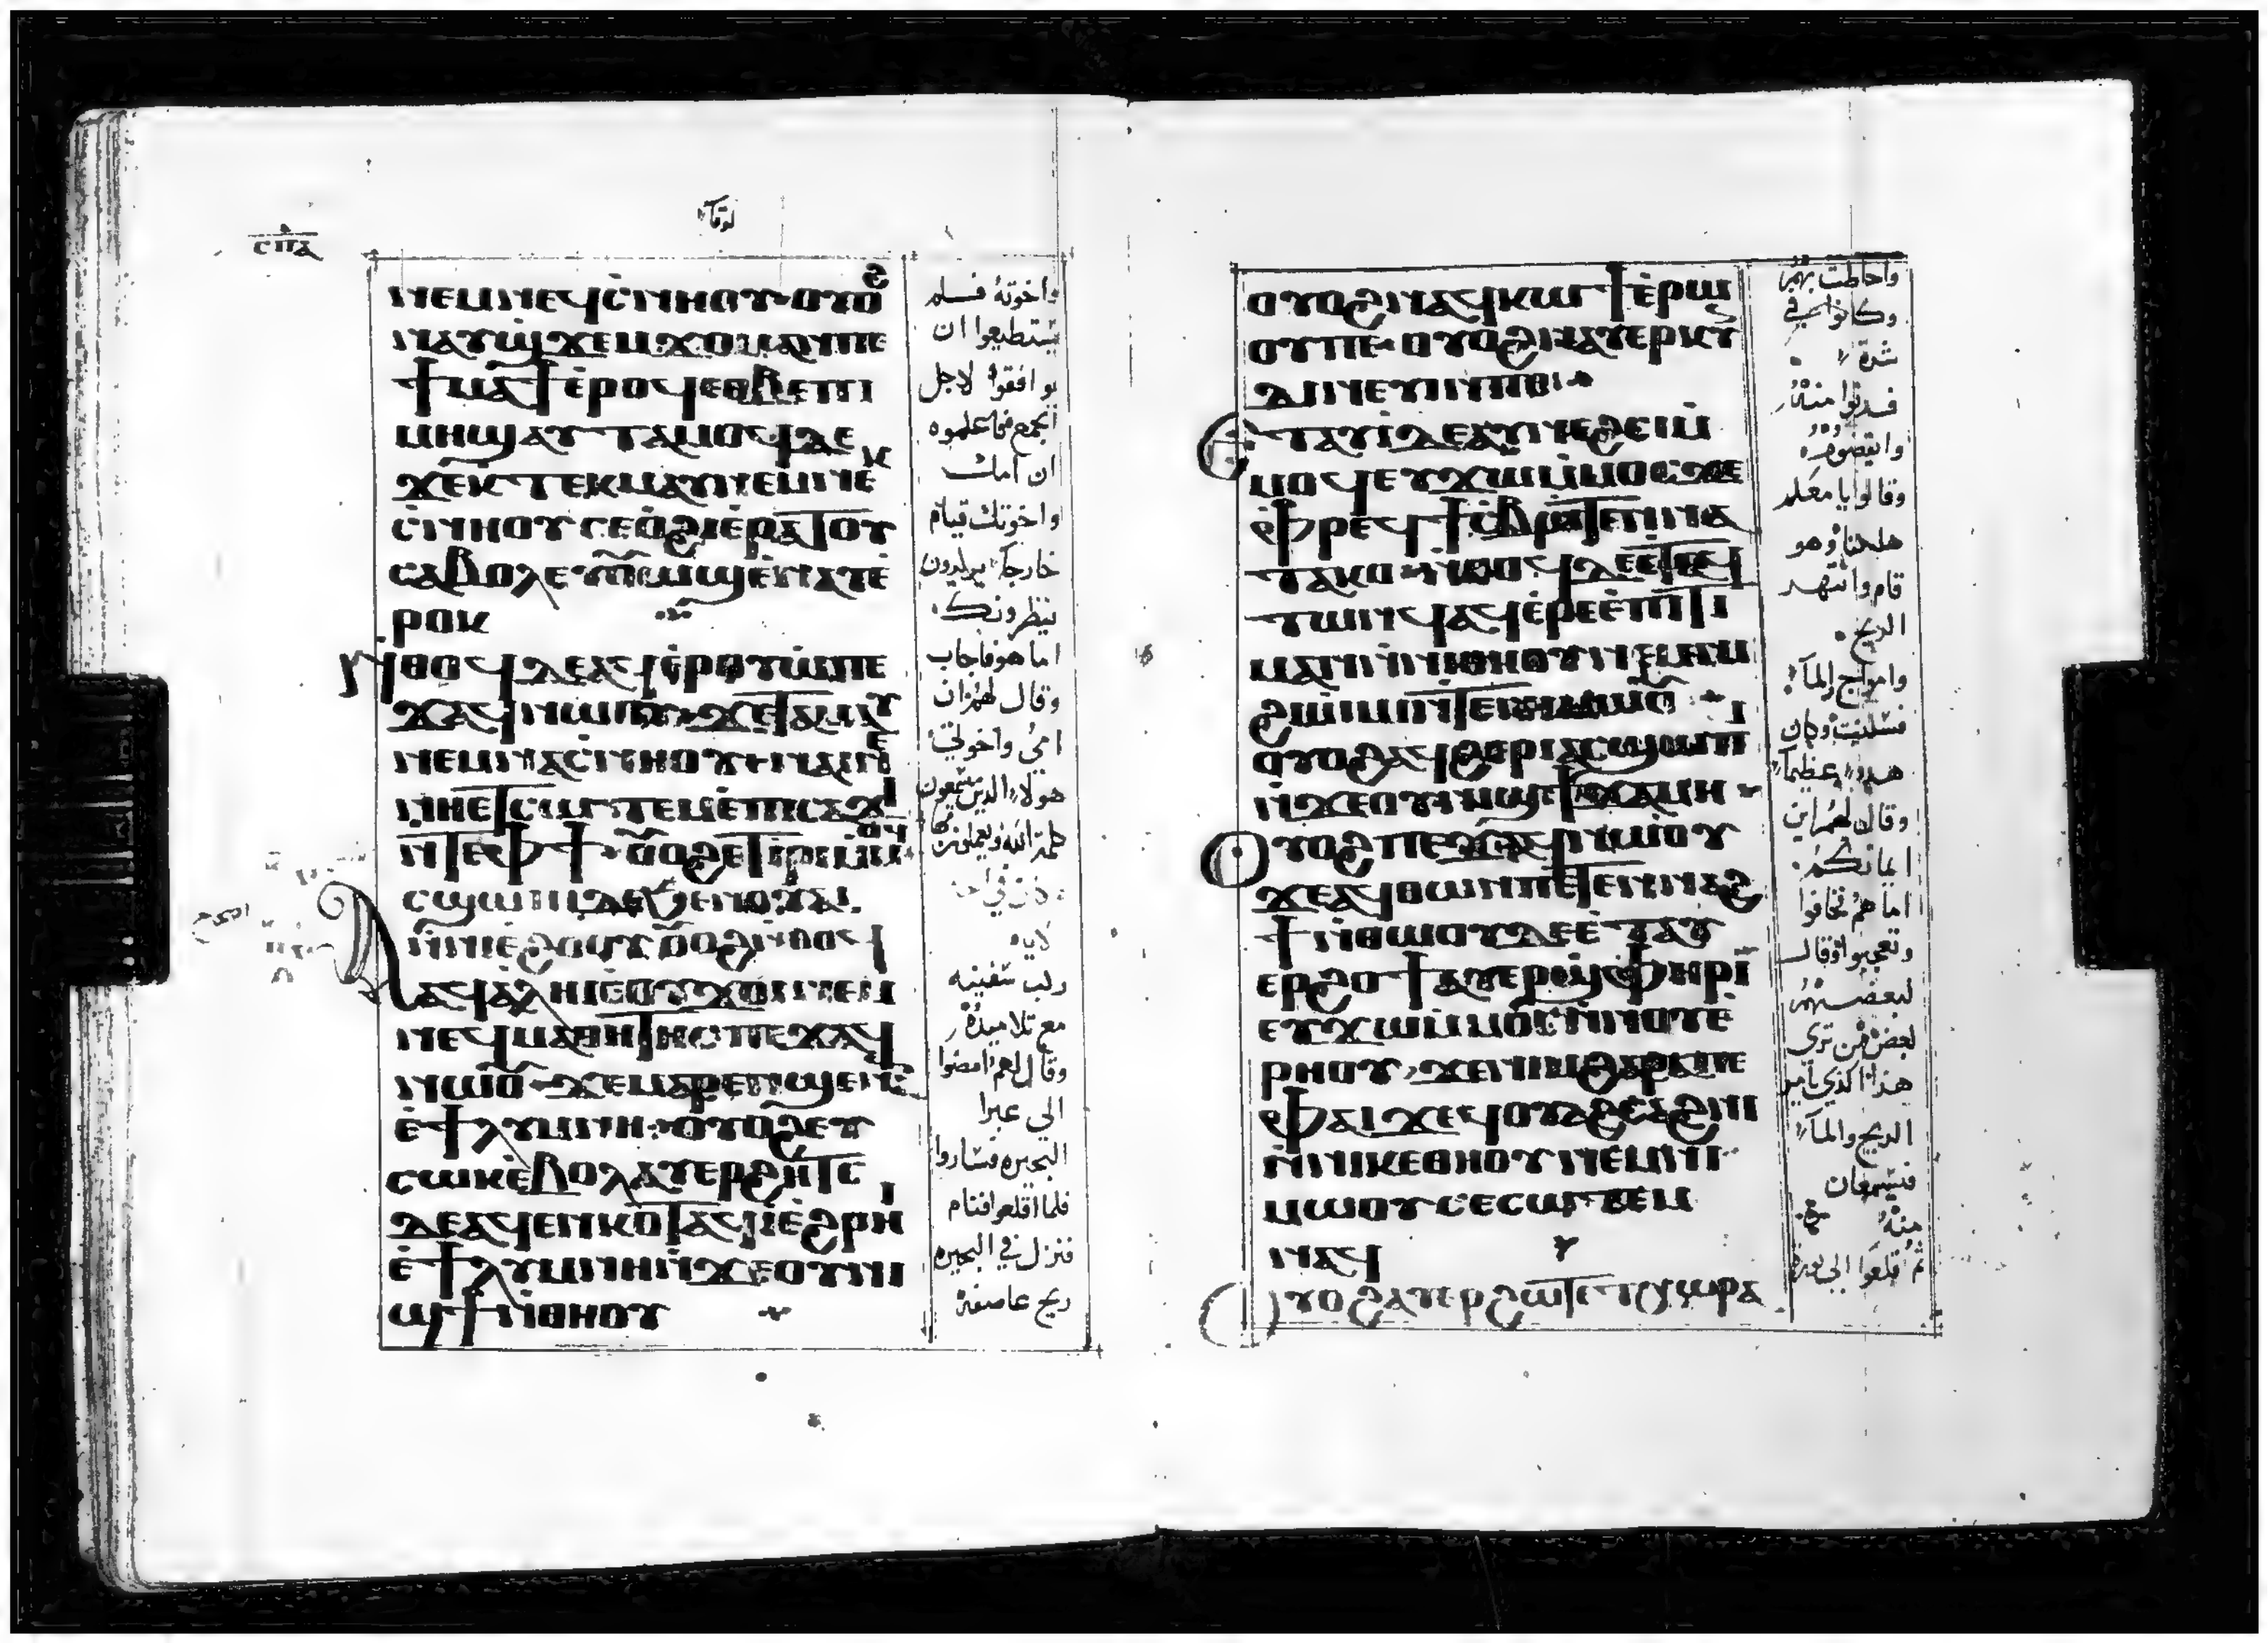 لوقا
ⲥⲡⲇ
ⲛⲉⲙⲛⲉϥⲥ̀ⲛⲏⲟⲩ ⲟⲩⲟϩ
ⲛⲁⲩϣ̀ϫⲉⲙϫⲟⲙⲁⲛⲡⲉ
ϯⲙⲁϯⲉ̀ⲣⲟϥⲉⲑⲃⲉⲡⲓ
ⲙⲏϣ ⲁⲩⲧⲁⲙⲟϥⲇⲉ
ϫⲉ ⲧⲉⲕⲙⲁⲩ ⲛⲉⲙⲛⲉⲕ
ⲥ̀ⲛⲏⲟⲩ ⲥⲉⲟ̀ϩⲓⲉ̀ⲣⲁⲧⲟⲩ
ⲥⲁⲃⲟⲗ ⲉⲩⲟⲩⲱϣⲉ̀ⲛⲁⲩⲉ̀
ⲣⲟⲕ
ⲛ̀ⲑⲟϥⲇⲉⲁϥⲉ̀ⲣⲟⲩⲱ̀ⲡⲉ
ϫⲁϥⲛⲱⲟⲩ ϫⲉⲧⲁⲙⲁⲩ
ⲛⲉⲙⲛⲁⲥ̀ⲛⲏⲟⲩ ⲛⲁⲓⲛⲉ
ⲛⲏⲉⲧⲥⲱⲧⲉⲙⲉ̀ⲡⲥⲁϫⲓ
ⲛ̀ⲧⲉⲫϯ ⲟⲩⲟϩⲉⲧⲓⲣⲓⲙ̀ⲙⲟϥ
ⲁⲥϣⲱⲡⲓⲇⲉϧⲉⲛⲟⲩⲁⲓ
ⲛ̀ⲛⲓⲉ̀ϩⲟⲟⲩ ⲟⲩⲟϩⲛ̀ⲑⲟϥ
ⲁϥⲁ̀ⲗⲏⲓⲉ̀ⲟⲩϫⲟⲓⲛⲉⲙ
ⲛⲉϥⲙⲁⲑⲏⲧⲏⲥ ⲡⲉϫⲁϥ
ⲛⲱⲟⲩ ϫⲉⲙⲁⲣⲉⲛϣⲉⲛ
ⲉ̀ϯⲗⲩⲙⲛⲏ ⲟⲩⲟϩⲉⲩ
ⲥⲱⲕⲉ̀ⲃⲟⲗⲁⲩⲉⲣϩⲏⲧⲥ
ⲇⲉⲁϥⲉⲛⲕⲟⲧⲁϥⲓ̀ⲉ̀ϩⲣⲏⲓ
ⲉ̀ϯⲗⲩⲙⲛⲏⲛ̀ϫⲉⲟⲩⲛⲓ
ϣϯⲛ̀ⲑⲏⲟⲩ
واخوته فسلم
يستطيعوا ان
يوافقوه لاجل
الجمع فاعلموه
ان امك
واخوتك قيام
خارجا يريدون
ينظرونك
اما هو فاجاب
وقال لهم ان
امي واخوتي
هولاء الذين يسمعون
كلمة الله ويعملون بها
ركب سفينه
مع تلاميذه
وقال لهم امضوا
الى عبر
البحيره فساروا
فلما اقلعوا فنام
فنزل في البحيره
ريح عاصفه
ⲟⲩⲟϩⲛⲁϥⲕⲱϯⲉ̀ⲣⲱ
ⲟⲩⲡⲉ ⲟⲩⲟϩⲛⲁⲩⲉⲣⲕⲩ
ⲇⲓⲛⲉⲩⲓⲛⲡⲉ
ⲉⲧⲁⲩⲓ̀ⲇⲉⲁⲩⲛⲉϩⲥⲓⲙ̀
ⲙⲟϥⲉⲩϫⲱⲙ̀ⲙⲟⲥϫⲉ
ⲫⲣⲉϥϯⲥ̀ⲃⲱⲧⲉⲛⲛⲁ
ⲧⲁⲕⲟ ⲛ̀ⲑⲟϥⲇⲉⲉ̀ⲧⲉϥ
ⲧⲱⲛϥⲁϥⲉ̀ⲣⲉ̀ⲡⲓⲧⲓ
ⲙⲁⲛⲙ̀ⲡⲓⲑⲏⲟⲩⲛⲉⲙⲡⲓ
ϩⲱⲓⲙⲓⲛ̀ⲧⲉⲡⲓⲙⲱⲟⲩ
ⲟⲩⲟϩⲁϥϩⲉⲣⲓⲁⲥϣⲱⲡⲓ
ⲛ̀ϫⲉⲟⲩⲛⲓϣϯⲛϫⲁⲙⲏ
ⲟⲩⲟϩⲡⲉϫⲁϥⲛⲱⲟⲩ
ϫⲉⲁϥⲑⲱⲛⲡⲉⲧⲉⲛⲛⲁϩ
ϯⲛ̀ⲑⲱⲟⲩⲇⲉⲉ̀ⲧⲁⲩ
ⲉⲣϩⲟϯⲁⲩⲉⲣϣⲫⲏⲣⲓ
ⲉⲩϫⲱⲙ̀ⲙⲟⲥⲛ̀ⲛⲟⲩⲉ̀
ⲣⲏⲟⲩ ϫⲉⲛⲓⲙϩⲁⲣⲁⲡⲉ
ⲫⲁⲓϫⲉϥⲟⲩⲁϩⲥⲁϩⲛⲓ
ⲛ̀ⲛⲓⲕⲉⲑⲏⲟⲩⲛⲉⲙⲛⲓ
ⲙⲱⲟⲩⲥⲉⲥⲱⲧⲉⲙ
ⲛⲁϥ
ⲟⲩⲟϩⲁⲩⲉⲣϩⲱⲧⲉϯⲭⲱⲣⲁ
واحاطت بهم
وكانوا في
شدة
فدنوا منه
وايقضوه
وقالوا يا معلم
هلكنا وهو
قام وانتهر
الريح
وامواج الماء
فسكنت وكان
هدو عظيما
وقال لهم اين
ايمانكم
اما هم فخافوا
وتعجبوا وقال
بعضهم
لبعض من ترى
هذا الذي يامر
الريح والماء
فيسمعان
منه
ثم قلعوا الى كورة